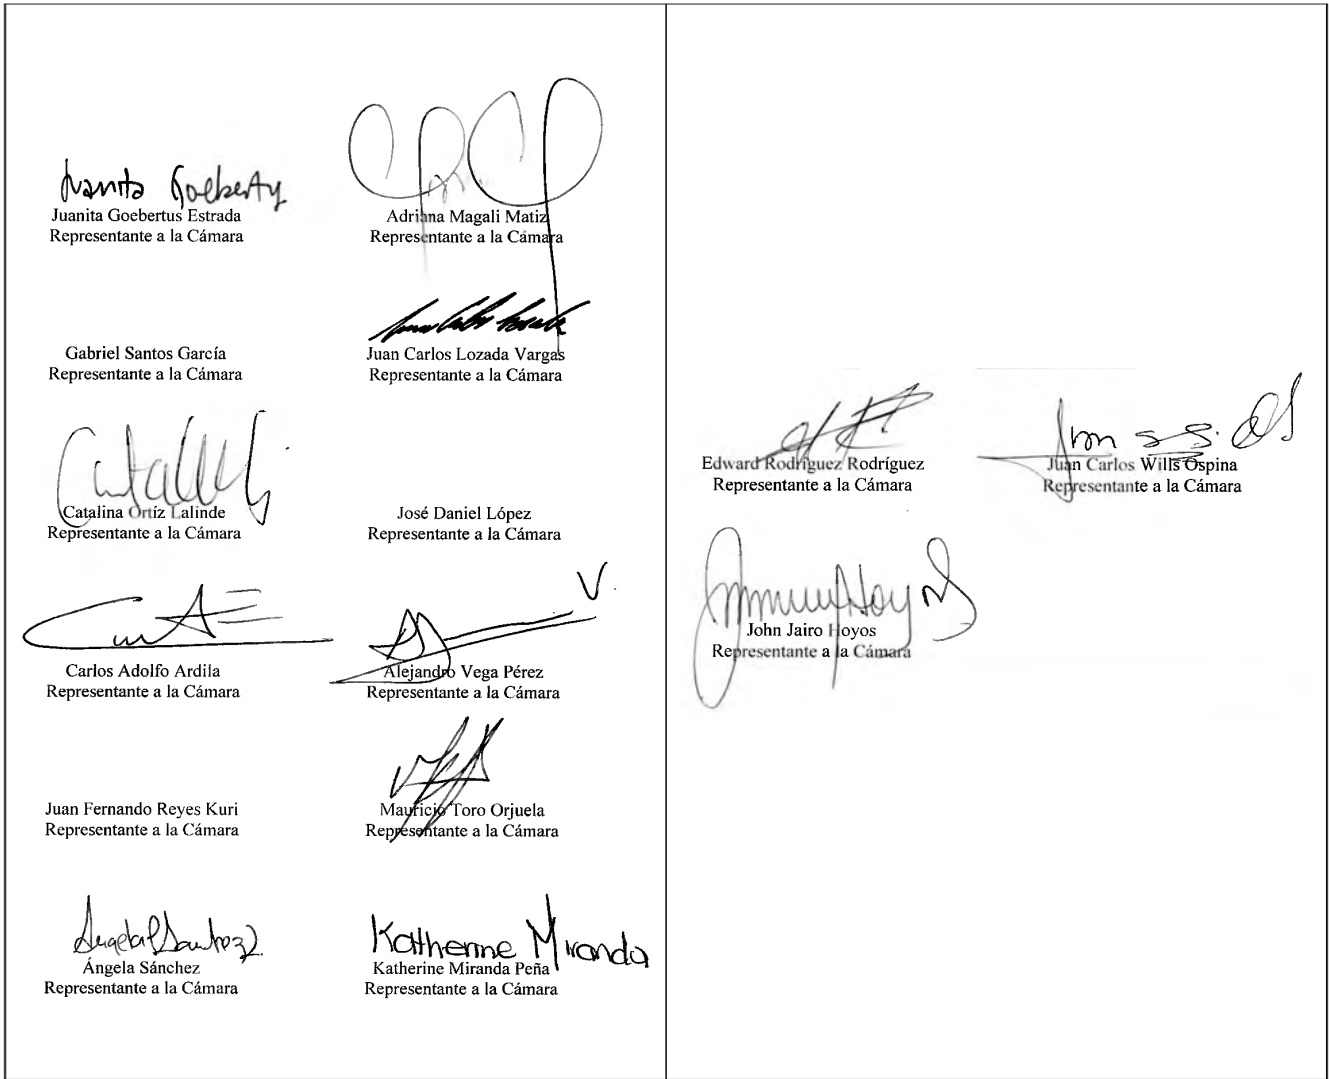 Juanita Goebertus
Juanita Goebertus Estrada
Representante a la Cámara
Adriana Magali Matiz
Representante a la Cámara
Gabriel Santos García
Representante a la Cámara
Juan Carlos Lozada Vargas
Representante a la Cámara
Catalina Ortíz Lalinde
Representante a la Cámara
José Daniel López
Representante a la Cámara
Carlos Adolfo Ardila
Representante a la Cámara
Alejandro Vega Pérez
Representante a la Cámara
Juan Fernando Reyes Kuri
Representante a la Cámara
Mauricio Toro Orjuela
Representante a la Cámara
Ángela Sánchez
Representante a la Cámara
Katherine Miranda
Katherine Miranda Peña
Representante a la Cámara
Edward Rodríguez Rodríguez
Representante a la Cámara
Juan Carlos Wills Ospina
Representante a la Cámara
John Jairo Hoyos
Representante a la Cámara